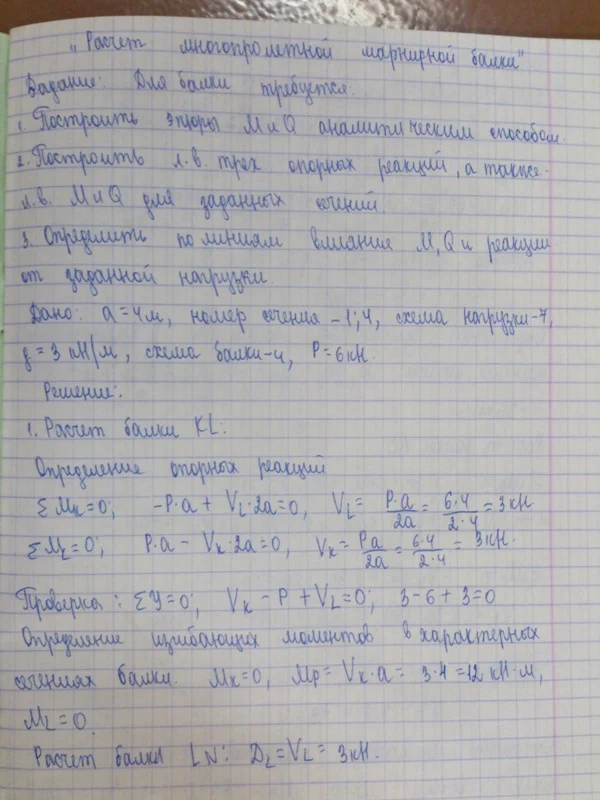 "Расчет многопролетной шарнирной балки"
Задание: Для балки требуется.
1. Построить эпюры M и Q аналитическим способом.
2. Построить л.в. трех опорных реакций, а также
л.в. M и Q для заданных сечений.
3. Определить по линиям влияние M, Q и реакции
от заданной нагрузки.
Дано: a=4м, номер сечения -1;4, схема нагрузки-7,
q=3 кН/м, схема балки-4, P=6кН.
Решение:
1. Расчет балки KL:
Определение опорных реакций
ΣMK=0; -P·a + VL·2a=0, VL= P·a/2a = 6·4/2·4 = 3кН.
ΣML=0; P·a - VK·2a=0, VK= Pa/2a = 6·4/2·4 = 3кН.
Проверка: ΣY=0; VK - P + VL=0; 3-6+3=0
Определение изгибающих моментов в характерных
сечениях балки. MK=0, MP= VK·a= 3·4=12 кН·м,
ML=0.
Расчет балки LN: DL=VL= 3кН.